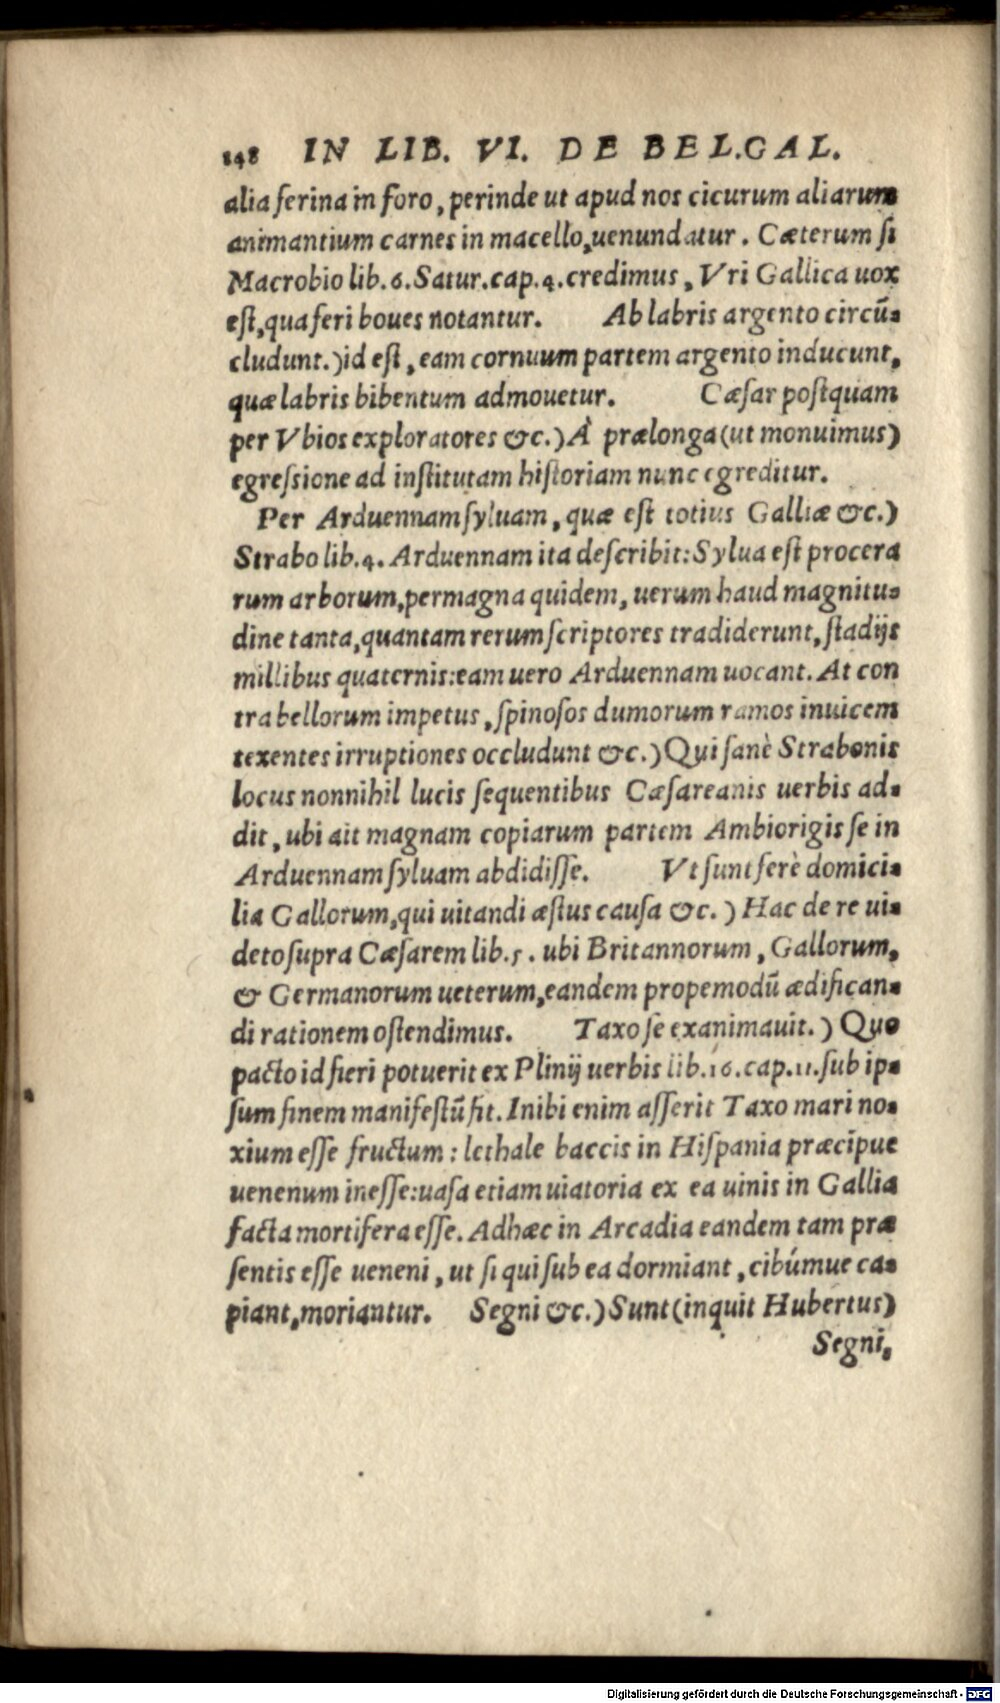 148 IN LIB. VI. DE BEL.GAL.
alia ferina in foro, perinde ut apud nos cicurum aliarum
animantium carnes in macello, uenundatur. Cæterum ſi
Macrobio lib. 6. Satur. cap. 4. credimus, Vri Gallica uox
eſt, qua feri boues notantur. Ab labris argento circũ-
cludunt.) id eſt, eam cornuum partem argento inducunt,
quæ labris bibentum admouetur. Cæſar poſtquam
per Vbios exploratores &c.) À prælonga (ut monuimus)
egreſsione ad inſtitutam hiſtoriam nunc egreditur.
Per Arduennam ſyluam, quæ eſt totius Galliæ &c.)
Strabo lib. 4. Arduennam ita deſcribit: Sylua eſt procera
rum arborum, permagna quidem, uerum haud magnitu-
dine tanta, quantam rerum ſcriptores tradiderunt, ſtadijs
millibus quaternis: eam uero Arduennam uocant. At con
tra bellorum impetus, ſpinoſos dumorum ramos inuicem
texentes irruptiones occludunt &c.) Qui ſanè Strabonis
locus nonnihil lucis ſequentibus Cæſareanis uerbis ad-
dit, ubi ait magnam copiarum partem Ambiorigis ſe in
Arduennam ſyluam abdidiſſe. Vt ſunt ferè domici-
lia Gallorum, qui uitandi æſtus cauſa &c.) Hac de re ui-
deto ſupra Cæſarem lib. 5. ubi Britannorum, Gallorum,
& Germanorum ueterum, eandem propemodũ ædifican-
di rationem oſtendimus. Taxo ſe exanimauit.) Quo
pacto id fieri potuerit ex Plinij uerbis lib. 16. cap. 11. ſub ip-
ſum finem manifeſtũ fit. Inibi enim aſſerit Taxo mari no-
xium eſſe fructum: lethale baccis in Hiſpania præcipue
uenenum ineſſe: uaſa etiam uiatoria ex ea uinis in Gallia
facta mortifera eſſe. Adhæc in Arcadia eandem tam præ
ſentis eſſe ueneni, ut ſi qui ſub ea dormiant, cibúmue ca-
piant, moriantur. Segni &c.) Sunt (inquit Hubertus)
Segni,
Digitalisierung gefördert durch die Deutsche Forschungsgemeinschaft - DFG